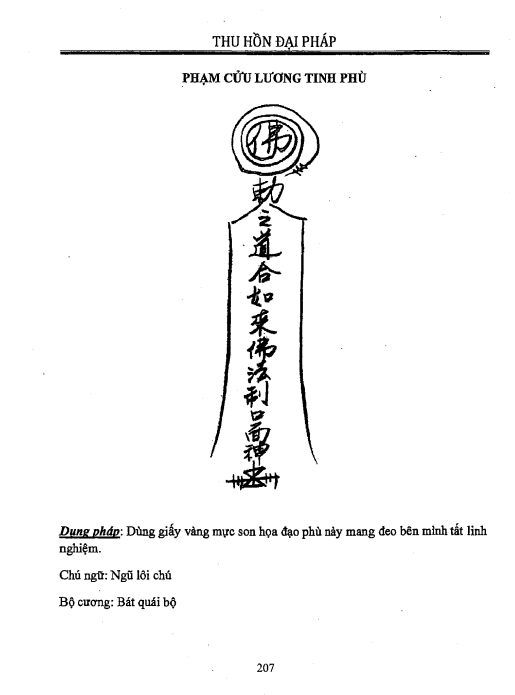 THU HỒN ĐẠI PHÁP
PHẠM CỬU LƯƠNG TINH PHÙ
佛
勅
之
道
合
如
來
佛
法
制
口
面
神
Dụng pháp: Dùng giấy vàng mực son họa đạo phù này mang đeo bên mình tất linh
nghiệm.
Chú ngữ: Ngũ lôi chú
Bộ cương: Bát quái bộ
207